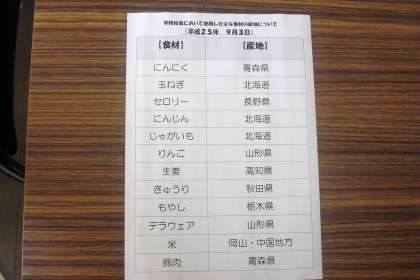 学校給食において使用した主な食材の産地について
（平成２５年　９月３日）
【食材】 【産地】
にんにく 青森県
玉ねぎ 北海道
セロリー 長野県
にんじん 北海道
じゃがいも 北海道
りんご 山形県
生姜 高知県
きゅうり 秋田県
もやし 栃木県
デラウェア 山形県
米 岡山・中国地方
豚肉 青森県